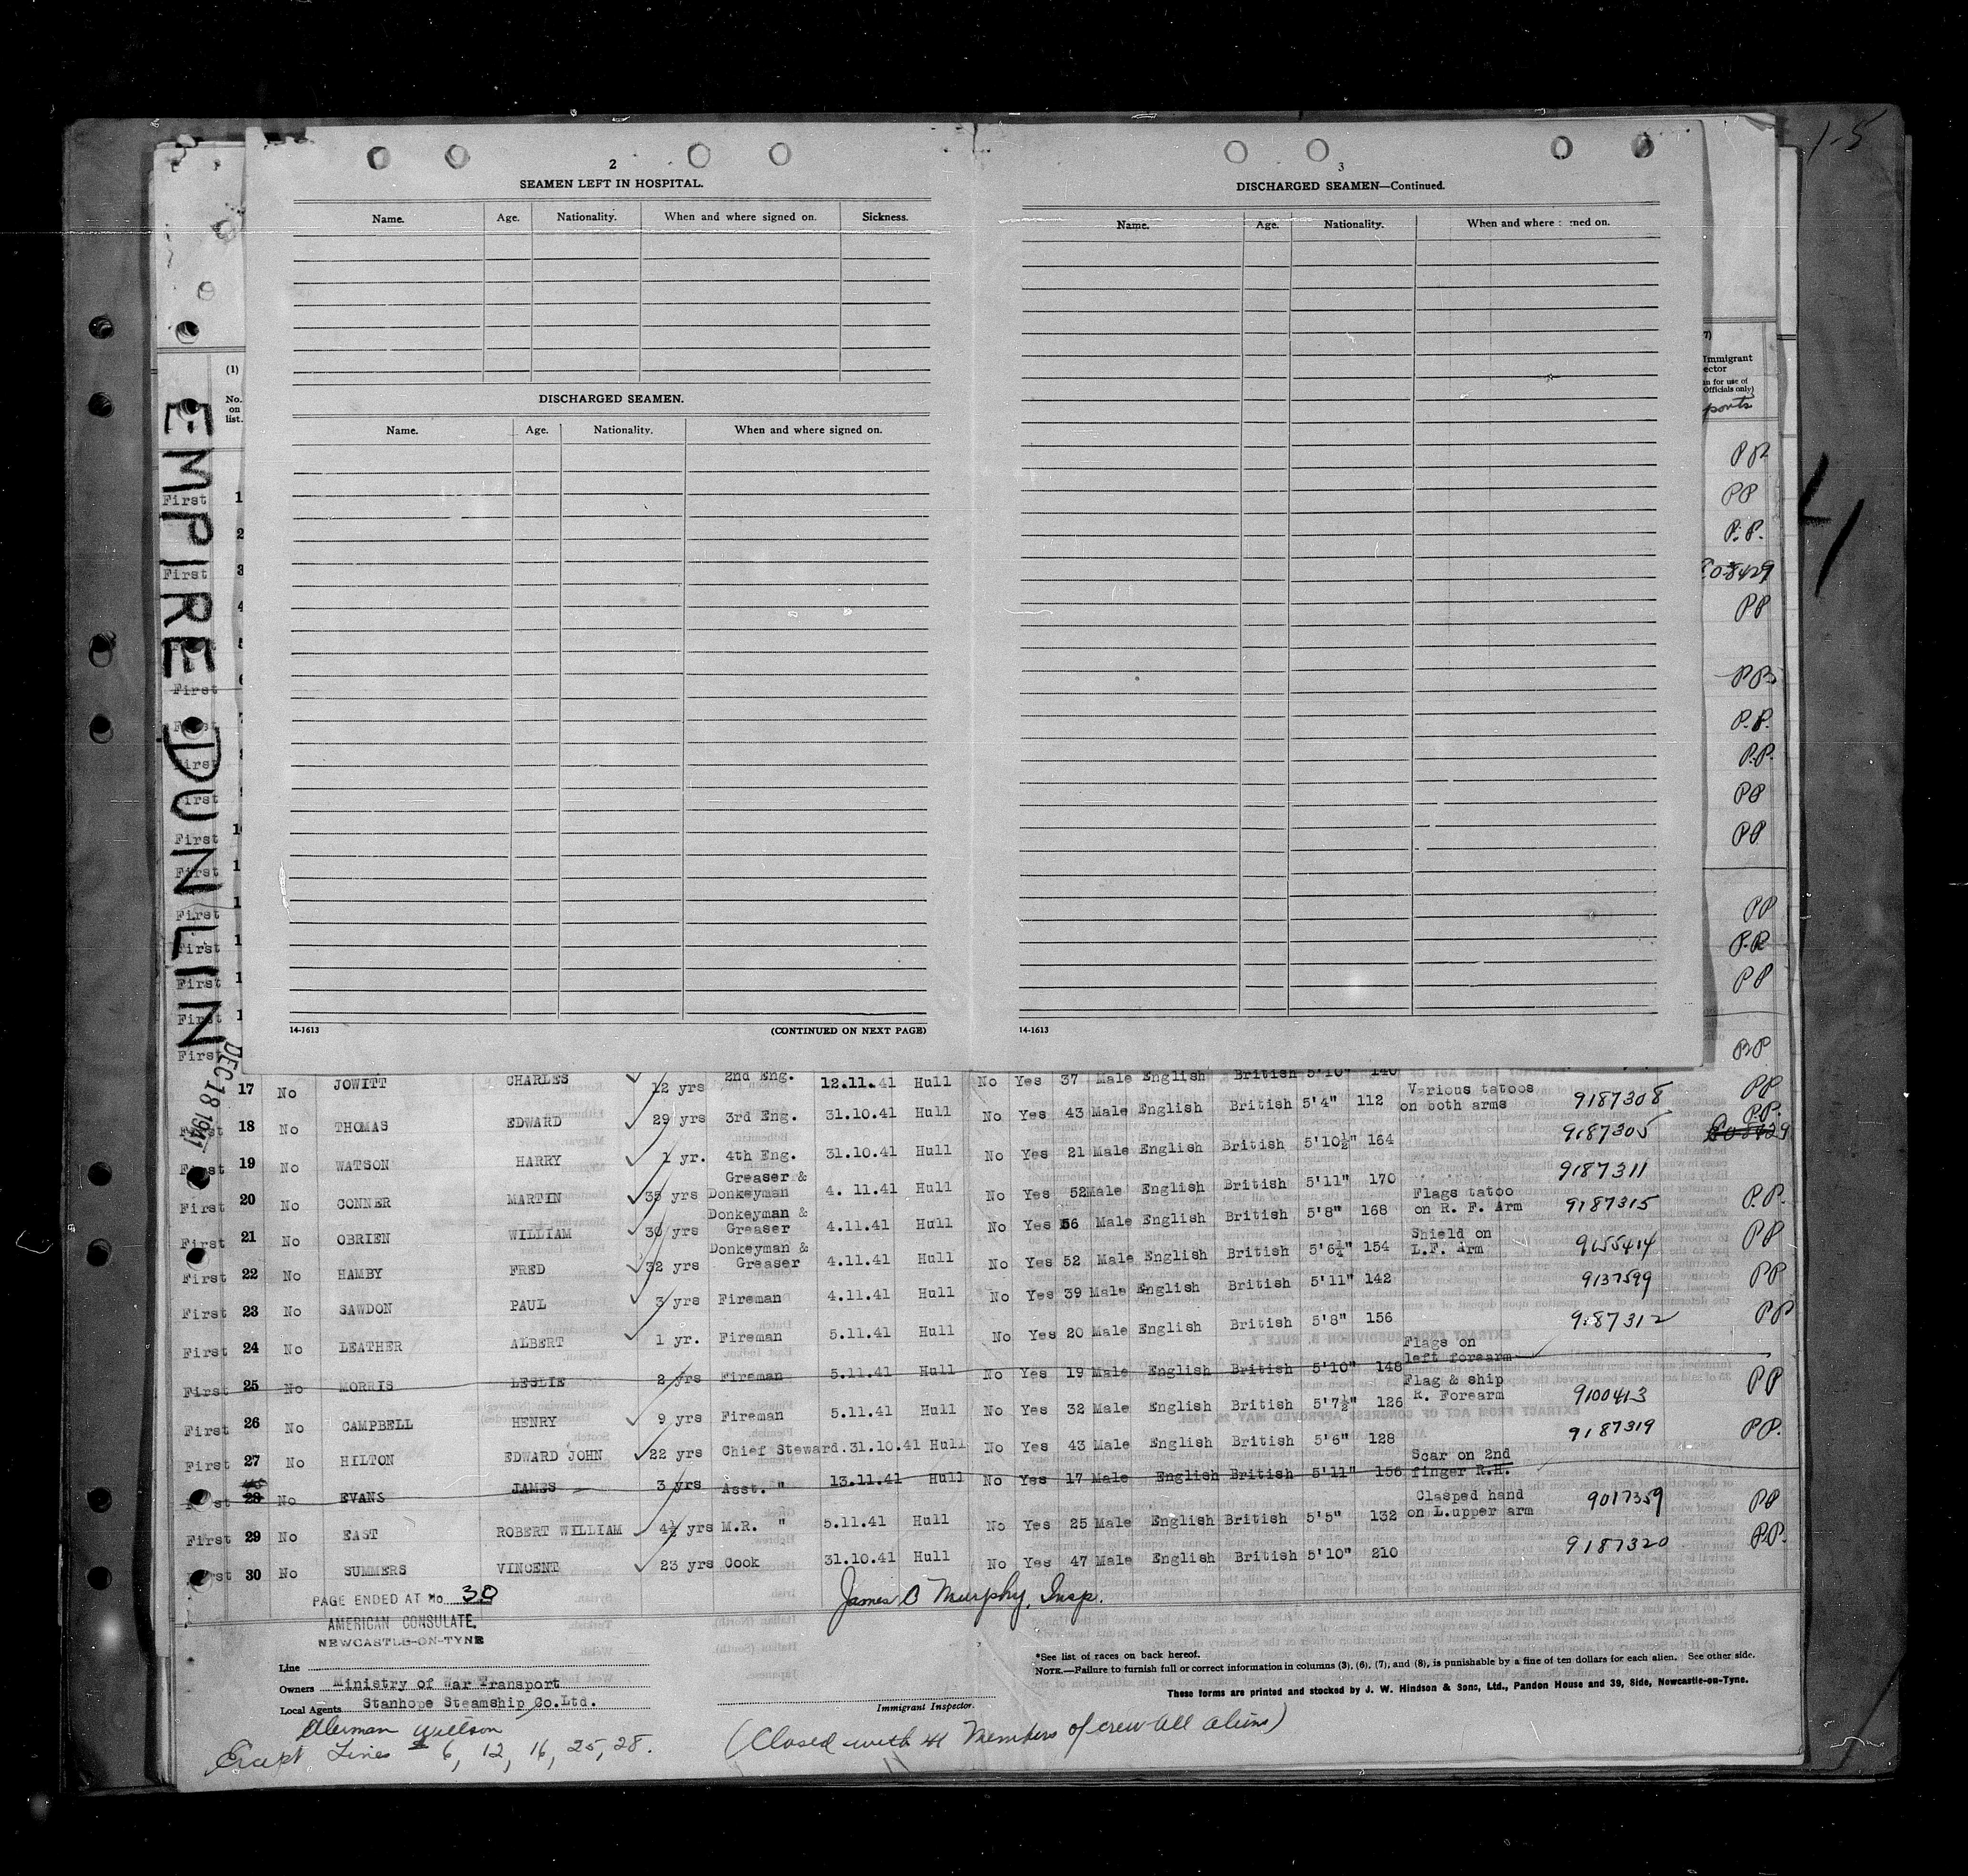 1-5
2
SEAMEN LEFT IN HOSPITAL.
Name. Age. Nationality. When and where signed on. Sickness.
DISCHARGED SEAMEN.
Name. Age. Nationality. When and where signed on.
14-1613 (CONTINUED ON NEXT PAGE)
3
DISCHARGED SEAMEN—Continued.
Name. Age. Nationality. When and where
14-1613
EMPIRE DUNLIN
DEC 18 1941
(1)
No. on list.
Immigrant
Officials only)
PP
PP
P.P.
PP
P.P.
P.P.
PP
PP
PP
PP
17 No JOWITT CHARLES 12 yrs 2nd Eng. 12.11.41 Hull No Yes 37 Male English British 5'10" 140 Various tatoos on both arms 9187308 PP
First 18 No THOMAS EDWARD 29 yrs 3rd Eng. 31.10.41 Hull No Yes 43 Male English British 5'4" 112 9187305 P.P.
First 19 No WATSON HARRY 1 yr. 4th Eng. 31.10.41 Hull No Yes 21 Male English British 5'10½" 164 9187311
First 20 No CONNER MARTIN 35 yrs Greaser & Donkeyman 4. 11.41 Hull No Yes 52 Male English British 5'11" 170 Flags tatoo on R. F. Arm 9187315 P.P.
First 21 No OBRIEN WILLIAM 30 yrs Donkeyman & Greaser 4.11.41 Hull No Yes 56 Male English British 5'8" 168 Shield on L.F. Arm 9155414 PP
First 22 No HAMBY FRED 32 yrs Donkeyman & Greaser 4.11.41 Hull No Yes 52 Male English British 5'6¼" 154 9137599 PP
First 23 No SAWDON PAUL 3 yrs Fireman 4.11.41 Hull No Yes 39 Male English British 5'11" 142 9187312 PP
First 24 No LEATHER ALBERT 1 yr. Fireman 5.11.41 Hull No Yes 20 Male English British 5'8" 156 Flags on left forearm
First 25 No MORRIS LESLIE 2 yrs Fireman 5.11.41 Hull No Yes 19 Male English British 5'10" 148 Flag & ship R. Forearm 9100413 PP
First 26 No CAMPBELL HENRY 9 yrs Fireman 5.11.41 Hull No Yes 32 Male English British 5'7½" 126 9187319 PP.
First 27 No HILTON EDWARD JOHN 22 yrs Chief Steward. 31.10.41 Hull No Yes 43 Male English British 5'6" 128 Scar on 2nd finger R.H.
28 No EVANS JAMES 3 yrs Asst. " 13.11.41 Hull No Yes 17 Male English British 5'11" 156 Clasped hand on L.upper arm 9017359 PP
First 29 No EAST ROBERT WILLIAM 4½ yrs M.R. " 5.11.41 Hull No Yes 25 Male English British 5'5" 132 9187320 PP.
First 30 No SUMMERS VINCENT 23 yrs Cook 31.10.41 Hull No Yes 47 Male English British 5'10" 210
PAGE ENDED AT No 30
AMERICAN CONSULATE.
NEWCASTLE-ON-TYNE
James B Murphy, Insp.
Line
Owners Ministry of War Transport
Local Agents Stanhope Steamship Co.Ltd.
Immigrant Inspector.
*See list of races on back hereof.
NOTE.—Failure to furnish full or correct information in columns (3), (6), (7), and (8), is punishable by a fine of ten dollars for each alien. See other side.
These forms are printed and stocked by J. W. Hindson & Sons, Ltd., Pandon House and 39, Side, Newcastle-on-Tyne.
Ellerman Willson
Except Lines 6, 12, 16, 25, 28.
(Closed with 41 Members of crew all aliens)